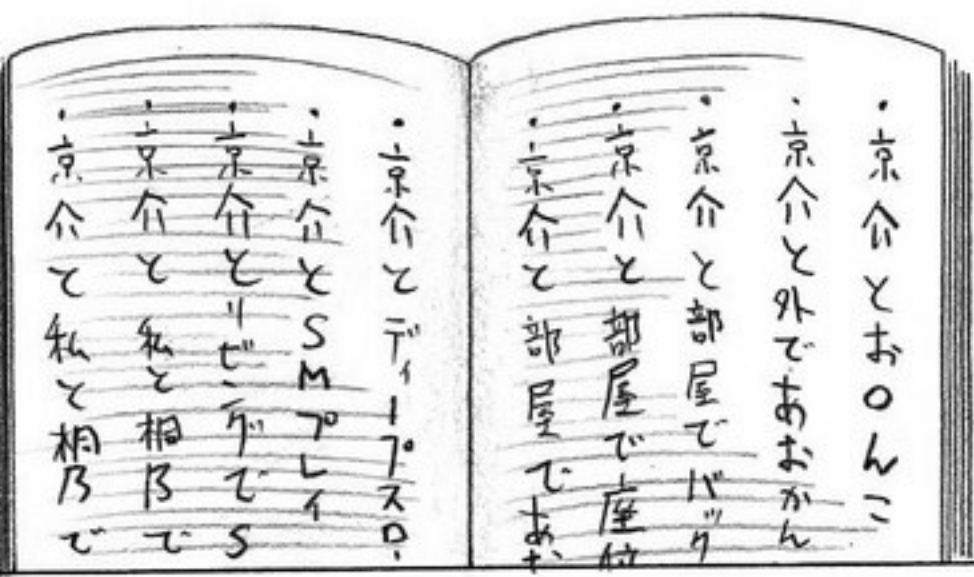 ・京介とお〇んこ
・京介と外であおかん
・京介と部屋でバック
・京介と部屋で座位
・京介と部屋であ
・京介とディープスロ
・京介とSMプレイ
・京介とリビングでS
・京介と私と桐乃で
・京介と私と桐乃で